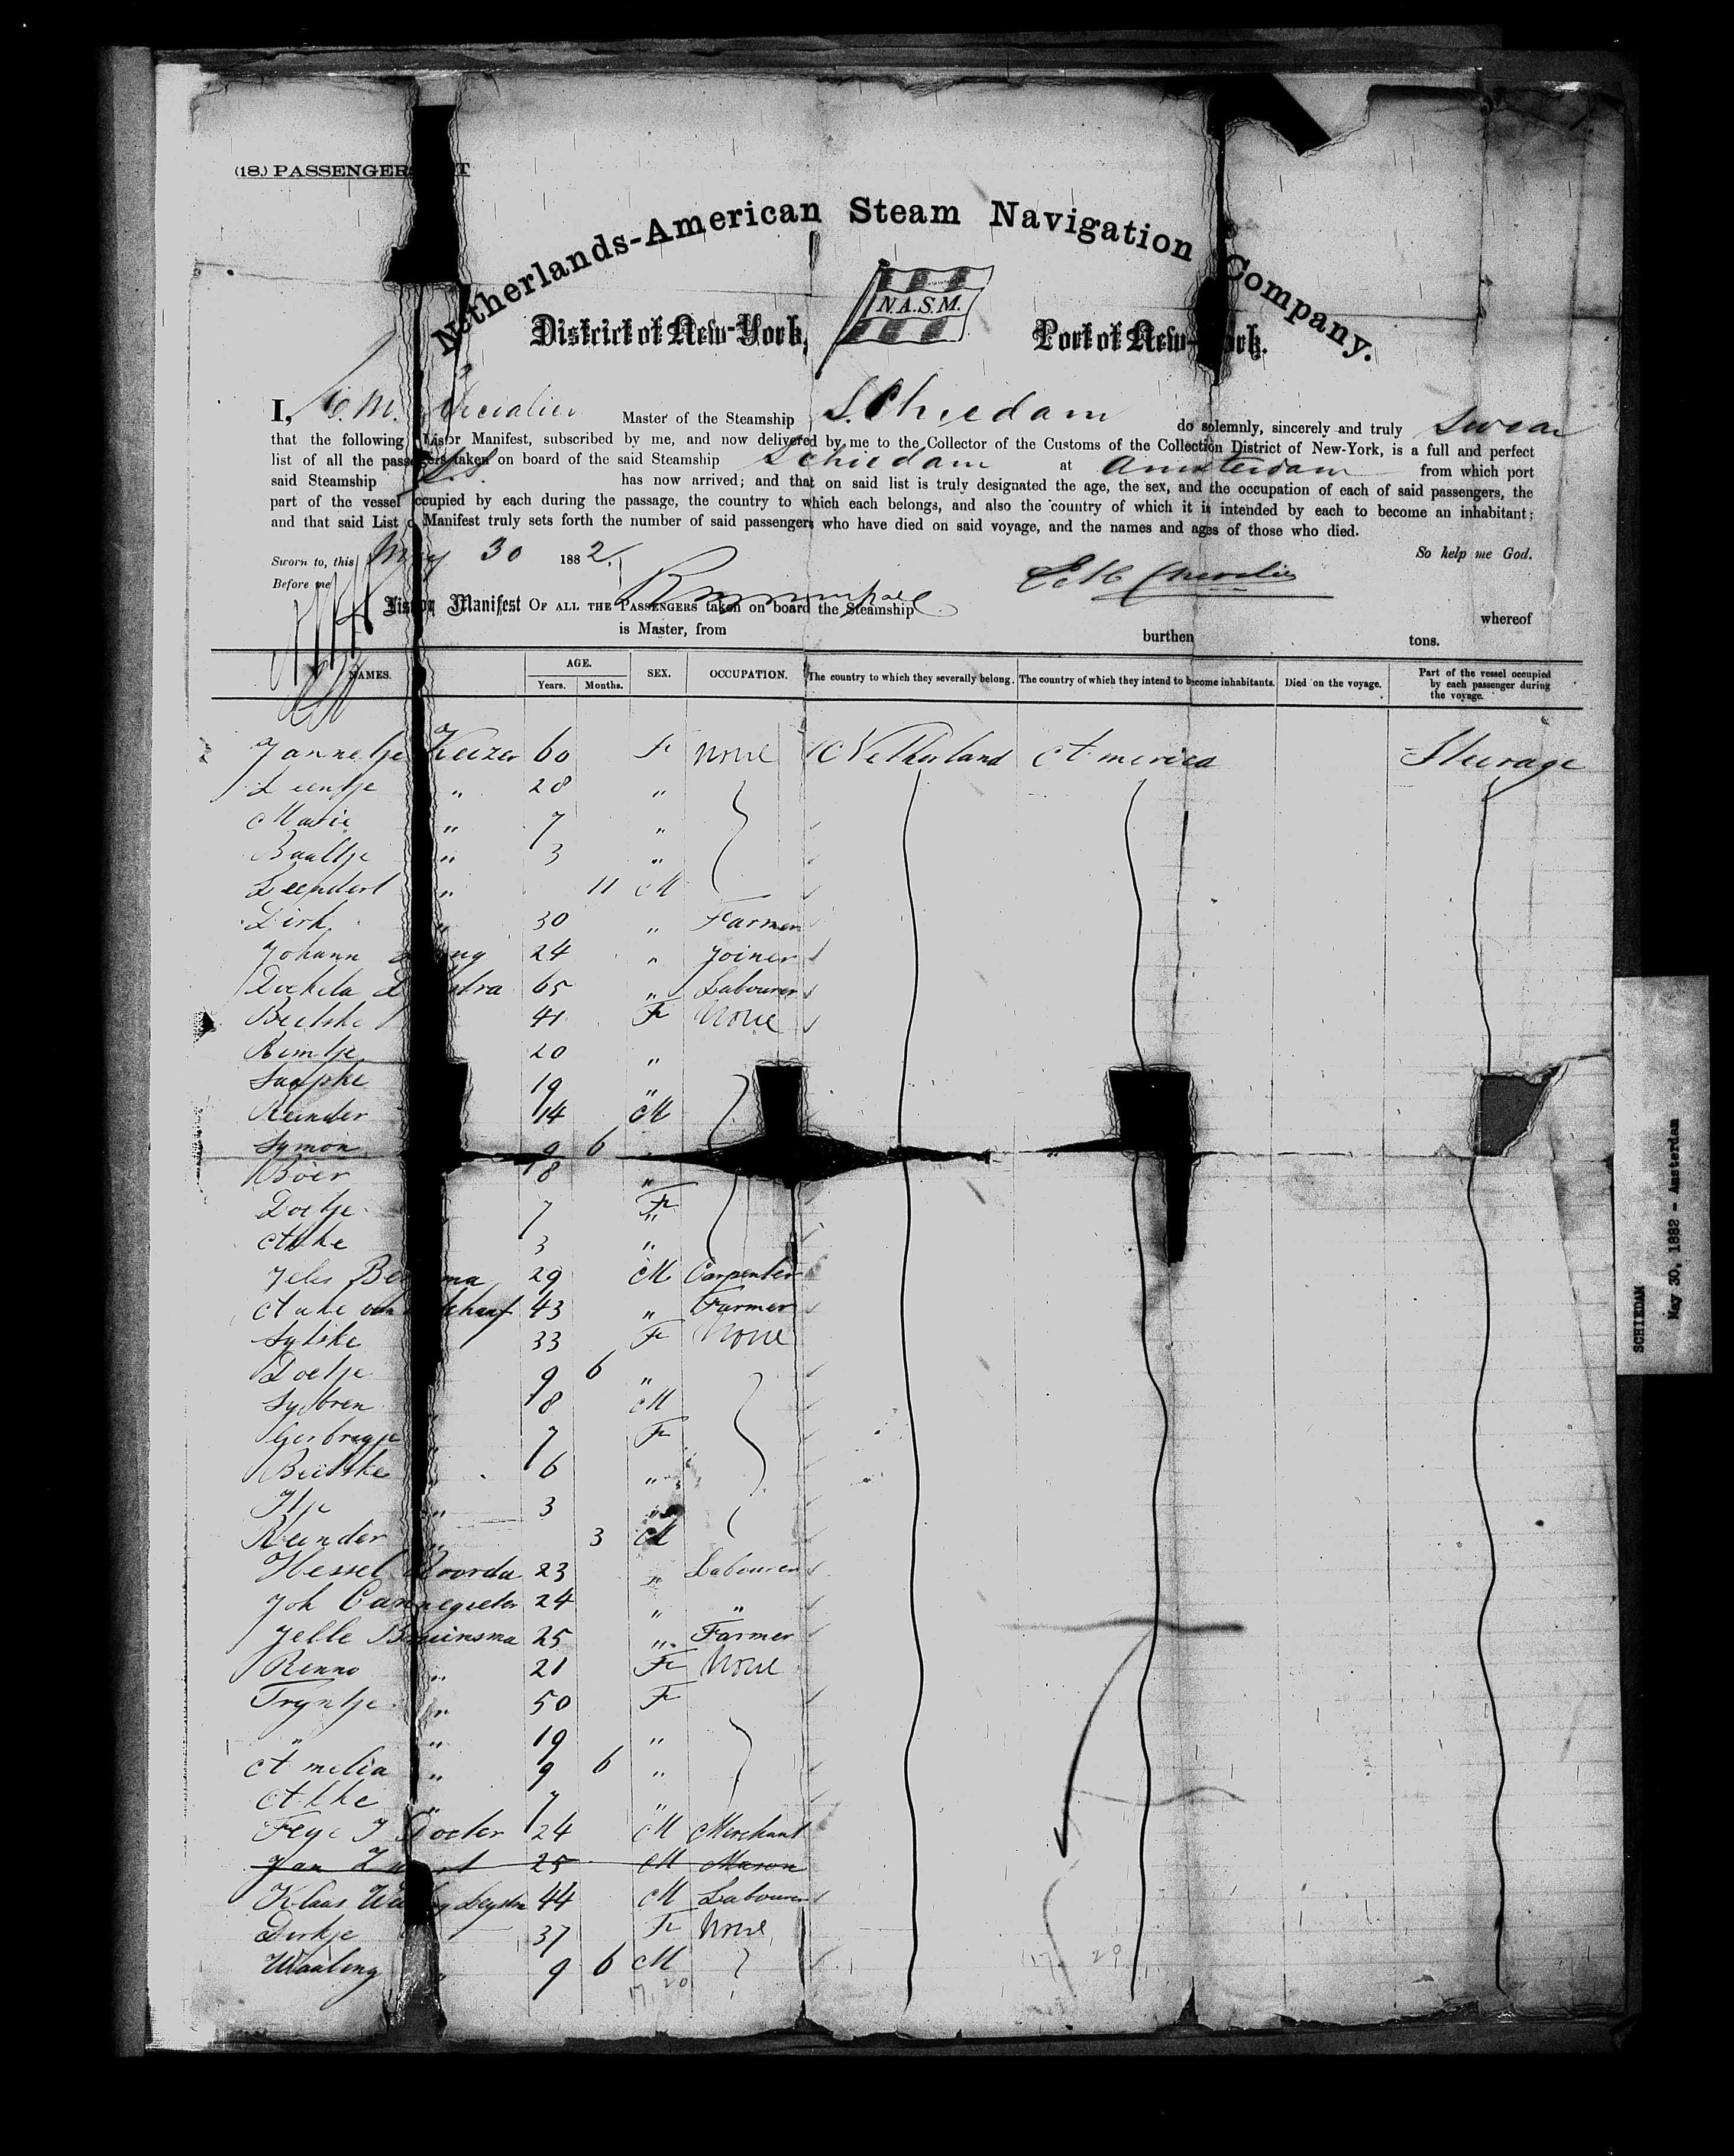 (18.) PASSENGER T
Netherlands-American Steam Navigation Company.
N.A.S.M.
District of New-York, Port of New-York.
I, C.M. Chevalier Master of the Steamship Schiedam do solemnly, sincerely and truly swear
that the following List or Manifest, subscribed by me, and now delivered by me to the Collector of the Customs of the Collection District of New-York, is a full and perfect
list of all the passengers taken on board of the said Steamship Schiedam at Amsterdam from which port
said Steamship S.S. has now arrived; and that on said list is truly designated the age, the sex, and the occupation of each of said passengers, the
part of the vessel occupied by each during the passage, the country to which each belongs, and also the country of which it is intended by each to become an inhabitant;
and that said List or Manifest truly sets forth the number of said passengers who have died on said voyage, and the names and ages of those who died.
Sworn to, this May 30 1882. So help me God.
Before me Chevalier
List or Manifest OF ALL THE PASSENGERS taken on board the Steamship whereof
is Master, from burthen tons.
NAMES. AGE. Years. Months. SEX. OCCUPATION. The country to which they severally belong. The country of which they intend to become inhabitants. Died on the voyage. Part of the vessel occupied by each passenger during the voyage.
Jannetje Keizer 60 F None Netherland America Steerage
Leentje " 28 "
Marie " 7 "
Baaltje " 3 "
Leendert " 11 M
Dirk " 30 " Farmer
Johann 24 " Joiner
Doekela stra 65 " Labourer
Beitske 41 F None
Remtje 20 "
Saapke 19 "
Reinder 14 M
Symon 9 6
Boer 8 "
Doetje 7 F
Atske 3 "
Jelis Be ma 29 M Carpenter
Auke van schaaf 43 " Farmer
Sytske 33 F None
Doetje 9 6 "
Sybren 8 M
Gerbregje 7 F
Beitske 6 "
Itje " 3 "
Reinder " 3 M
Hessel Roorda 23 " Labourer
Joh Cannegieter 24 " "
Jelle Bruinsma 25 " Farmer
Renno " 21 F None
Tryntje " 50 F
" " 19 "
Amelia " 9 6 "
Atke " 7 "
Feye J Docter 24 M Merchant
Jan 25 M Mason
Klaas 44 M Labourer
Dirkje 37 F None
Waaling " 9 6 M
17 20
17 20
SCHIEDAM
May 30, 1882 - Amsterdam